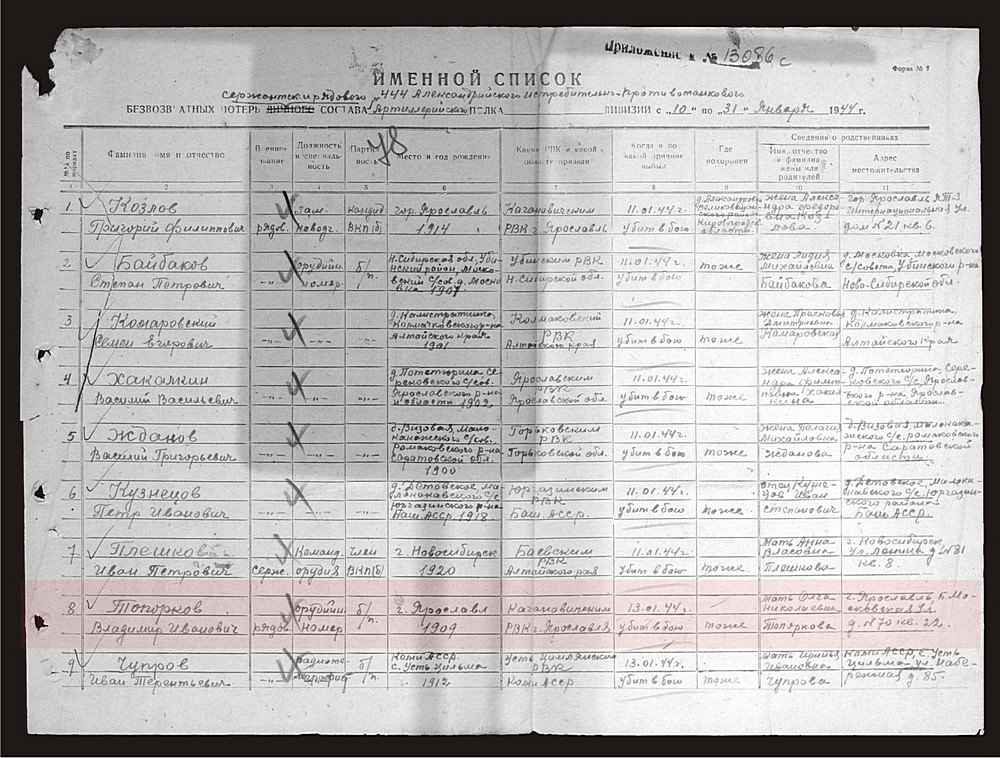 Приложение к № 13086 с
Форма № 9
ИМЕННОЙ СПИСОК
сержантск и рядового 444 Александрийского Истребительно-Противотанкового
БЕЗВОЗВРАТНЫХ ПОТЕРЬ ЛИЧНОГО СОСТАВА Артиллерийского ПОЛКА ДИВИЗИИ с „10" по „31" Января 1944 г.
№№ по порядку
Фамилия имя и отчество
Военное звание
Должность и специальность
Партийность
Место и год рождения
Каким РВК и какой области призван
Когда и по какой причине выбыл
Где похоронен
Сведения о родственниках
Имя, отчество и фамилия жены или родителей
Адрес местожительства
1 2 3 4 5 6 7 8 9 10 11
78
1 Козлов Зам. кандид гор. Ярославль Кагановичским 11.01.44г.
Григорий Филиппович рядов. наводч. ВКП(б) 1914 РВК г. Ярославль убит в бою
жена Александра Федоровна Козлова
гор. Ярославль ЯТЭЗ Интернациональная ул. дом N 21 кв. 6.
2 Байбаков орудийн б/п. Убинским РВК 11.01.44г. тоже
Степан Петрович -„- номер Н.Сибирской обл. убит в бою
Н.Сибирская обл, Убинский район, Московский с/сов. д. Московка 1901
жена Лидия Михайловна Байбакова
д. Московка, Московского с/совета, Убинского р-на Ново-Сибирской обл.
3 Комаровский Колмаковский РВК 11.01.44г.
Семен -„- -„- -„- Алтайского края убит в бою тоже
д. Калистратиха, Калмаковского р-на Алтайского края 1901
жена Прасковья Дмитриевна Комаровская
д. Калистратиха, Калмаковского р-на Алтайского края
4 Хакалкин Ярославским РВК 11.01.44г.
Василий Васильевич -„- -„- -„- Ярославской обл. убит в бою тоже
Ярославского р-на и области 1902
жена Александра
5 Жданов Горьковским РВК 11.01.44г.
Василий Григорьевич -„- -„- -„- Горьковской обл. убит в бою тоже
Ромаковского р-на Саратовской обл. 1900
жена Пелагия Михайловна Жданова
Ромаковского р-на Саратовской области.
6 Кузнецов Юргазинским РВК 11.01.44г.
Петр Иванович Баш. АССР. убит в бою тоже
Юргазинского р-на Баш. АССР. 1918
отец Кузнецов Иван Степанович
Юргазинского район Баш АССР.
7 Плешков Команд. Член г. Новосибирск Баевским РВК 11.01.44г.
Иван Петрович Серж. орудия ВКП(б) 1920 Алтайского рая убит в бою тоже
Мать Анна Власовна Плешкова
г. Новосибирск ул. Ленина д N 81 кв. 8.
8 Топорков орудийн б/п. г. Ярославл Кагановическим 13.01.44г.
Владимир Иванович рядов. номер 1909 РВК г. Ярославля, убит в бою тоже
мать Ольга Николаевна Топоркова
г. Ярославль, Б. Московская ул. д. N 70 кв. 22.
9 Чупров радиотелеграфист б/п. Коми АССР. с. Усть Цильма Усть Цилемским РВК 13.01.44г.
Иван Терентьевич -„- 1912 Коми АССР убит в бою тоже
мать Ивановна Чупрова
Коми АССР, с. Усть Цильма ул. Набережная д. 85.